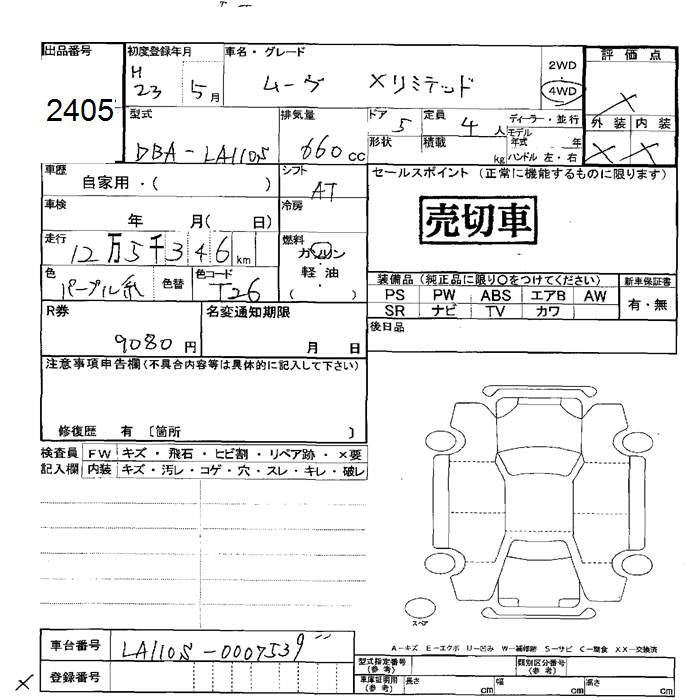 出品番号
2405
初度登録年月
H23 5月
車名・グレード
ムーヴ Xリミテッド
2WD
4WD
評価点
X
外装 内装
X X
型式
DBA-LA110S
排気量
660cc
ドア
5
定員
4人
形状
積載
kg
ディーラー・並行
モデル年式 年
ハンドル 左・右
車歴
自家用・( )
シフト
AT
車検
年 月( 日)
冷房
走行
12万5千346km
燃料
ガソリン
軽油
( )
色
パープル系
色替
色コード
T26
セールスポイント (正常に機能するものに限ります)
売切車
装備品(純正品に限り○をつけてください)
PS PW ABS エアB AW
SR ナビ TV カワ
新車保証書
有・無
後日品
R券
9080円
名変通知期限
月 日
注意事項申告欄(不具合内容等は具体的に記入して下さい)
修復歴 有 〔箇所 〕
検査員記入欄
FW キズ・飛石・ヒビ割・リペア跡・×要
内装 キズ・汚レ・コゲ・穴・スレ・キレ・破レ
スペア
A-キズ E-エクボ U-凹み W-補修跡 S-サビ C-腐食 XX-交換済
車台番号
LA110S-0007539
登録番号
X
型式指定番号(参考)
類別区分番号(参考)
車庫証明用(参考)
長さ cm 幅 cm 高さ cm